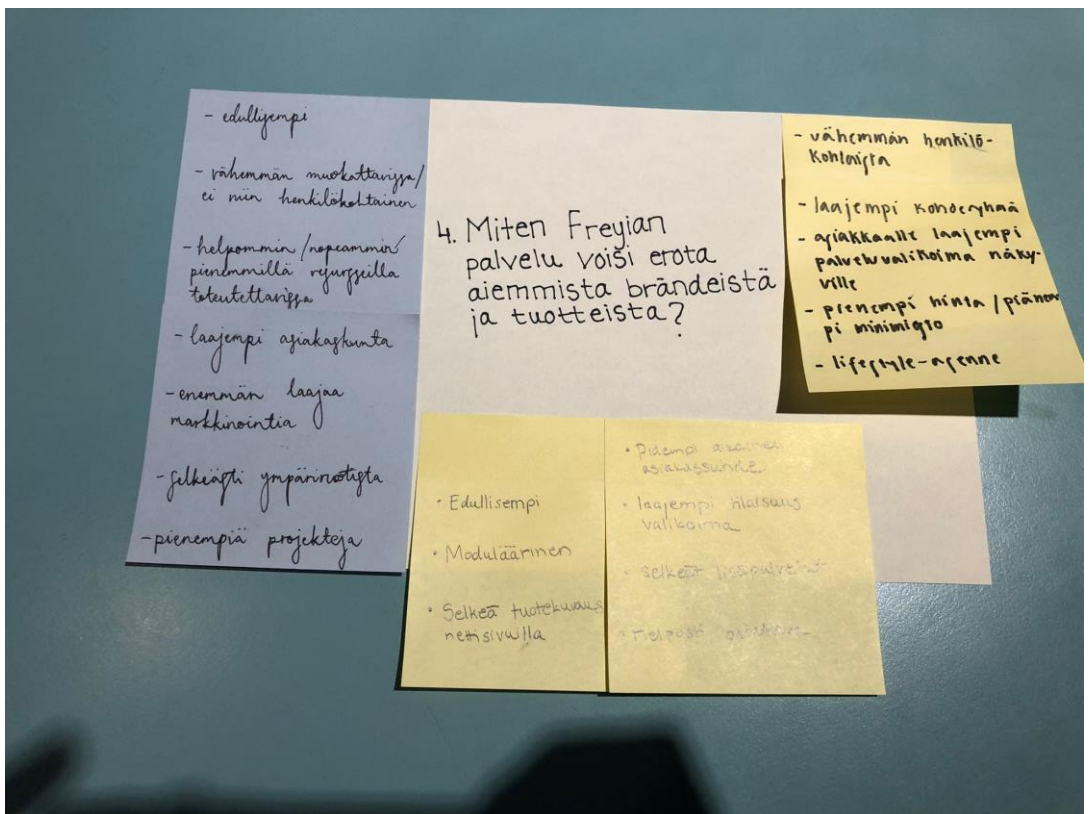 - edullisempi
- vähemmän muokattavissa/
ei niin henkilökohtainen
- helpommin/nopeammin/
pienemmillä resursseilla
toteutettavissa
- laajempi asiakaskunta
- enemmän laajaa
markkinointia
- selkeästi ympärivuotista
- pienempiä projekteja
4. Miten Freyian
palvelu voisi erota
aiemmista brändeistä
ja tuotteista?
- vähemmän henkilö-
kohtaista
- laajempi kohderyhmä
- asiakkaalle laajempi
palveluvalikoima näky-
ville
- pienempi hinta /
pi minimi
- lifestyle-asenne
• Edullisempi
• Moduläärinen
• Selkeä tuotekuvaus
nettisivuilla
• Pidempi aikainen
asiakassuhde
• laajempi tilaisuus
valikoima
• selkeät lisäpalvelut
• Helposti